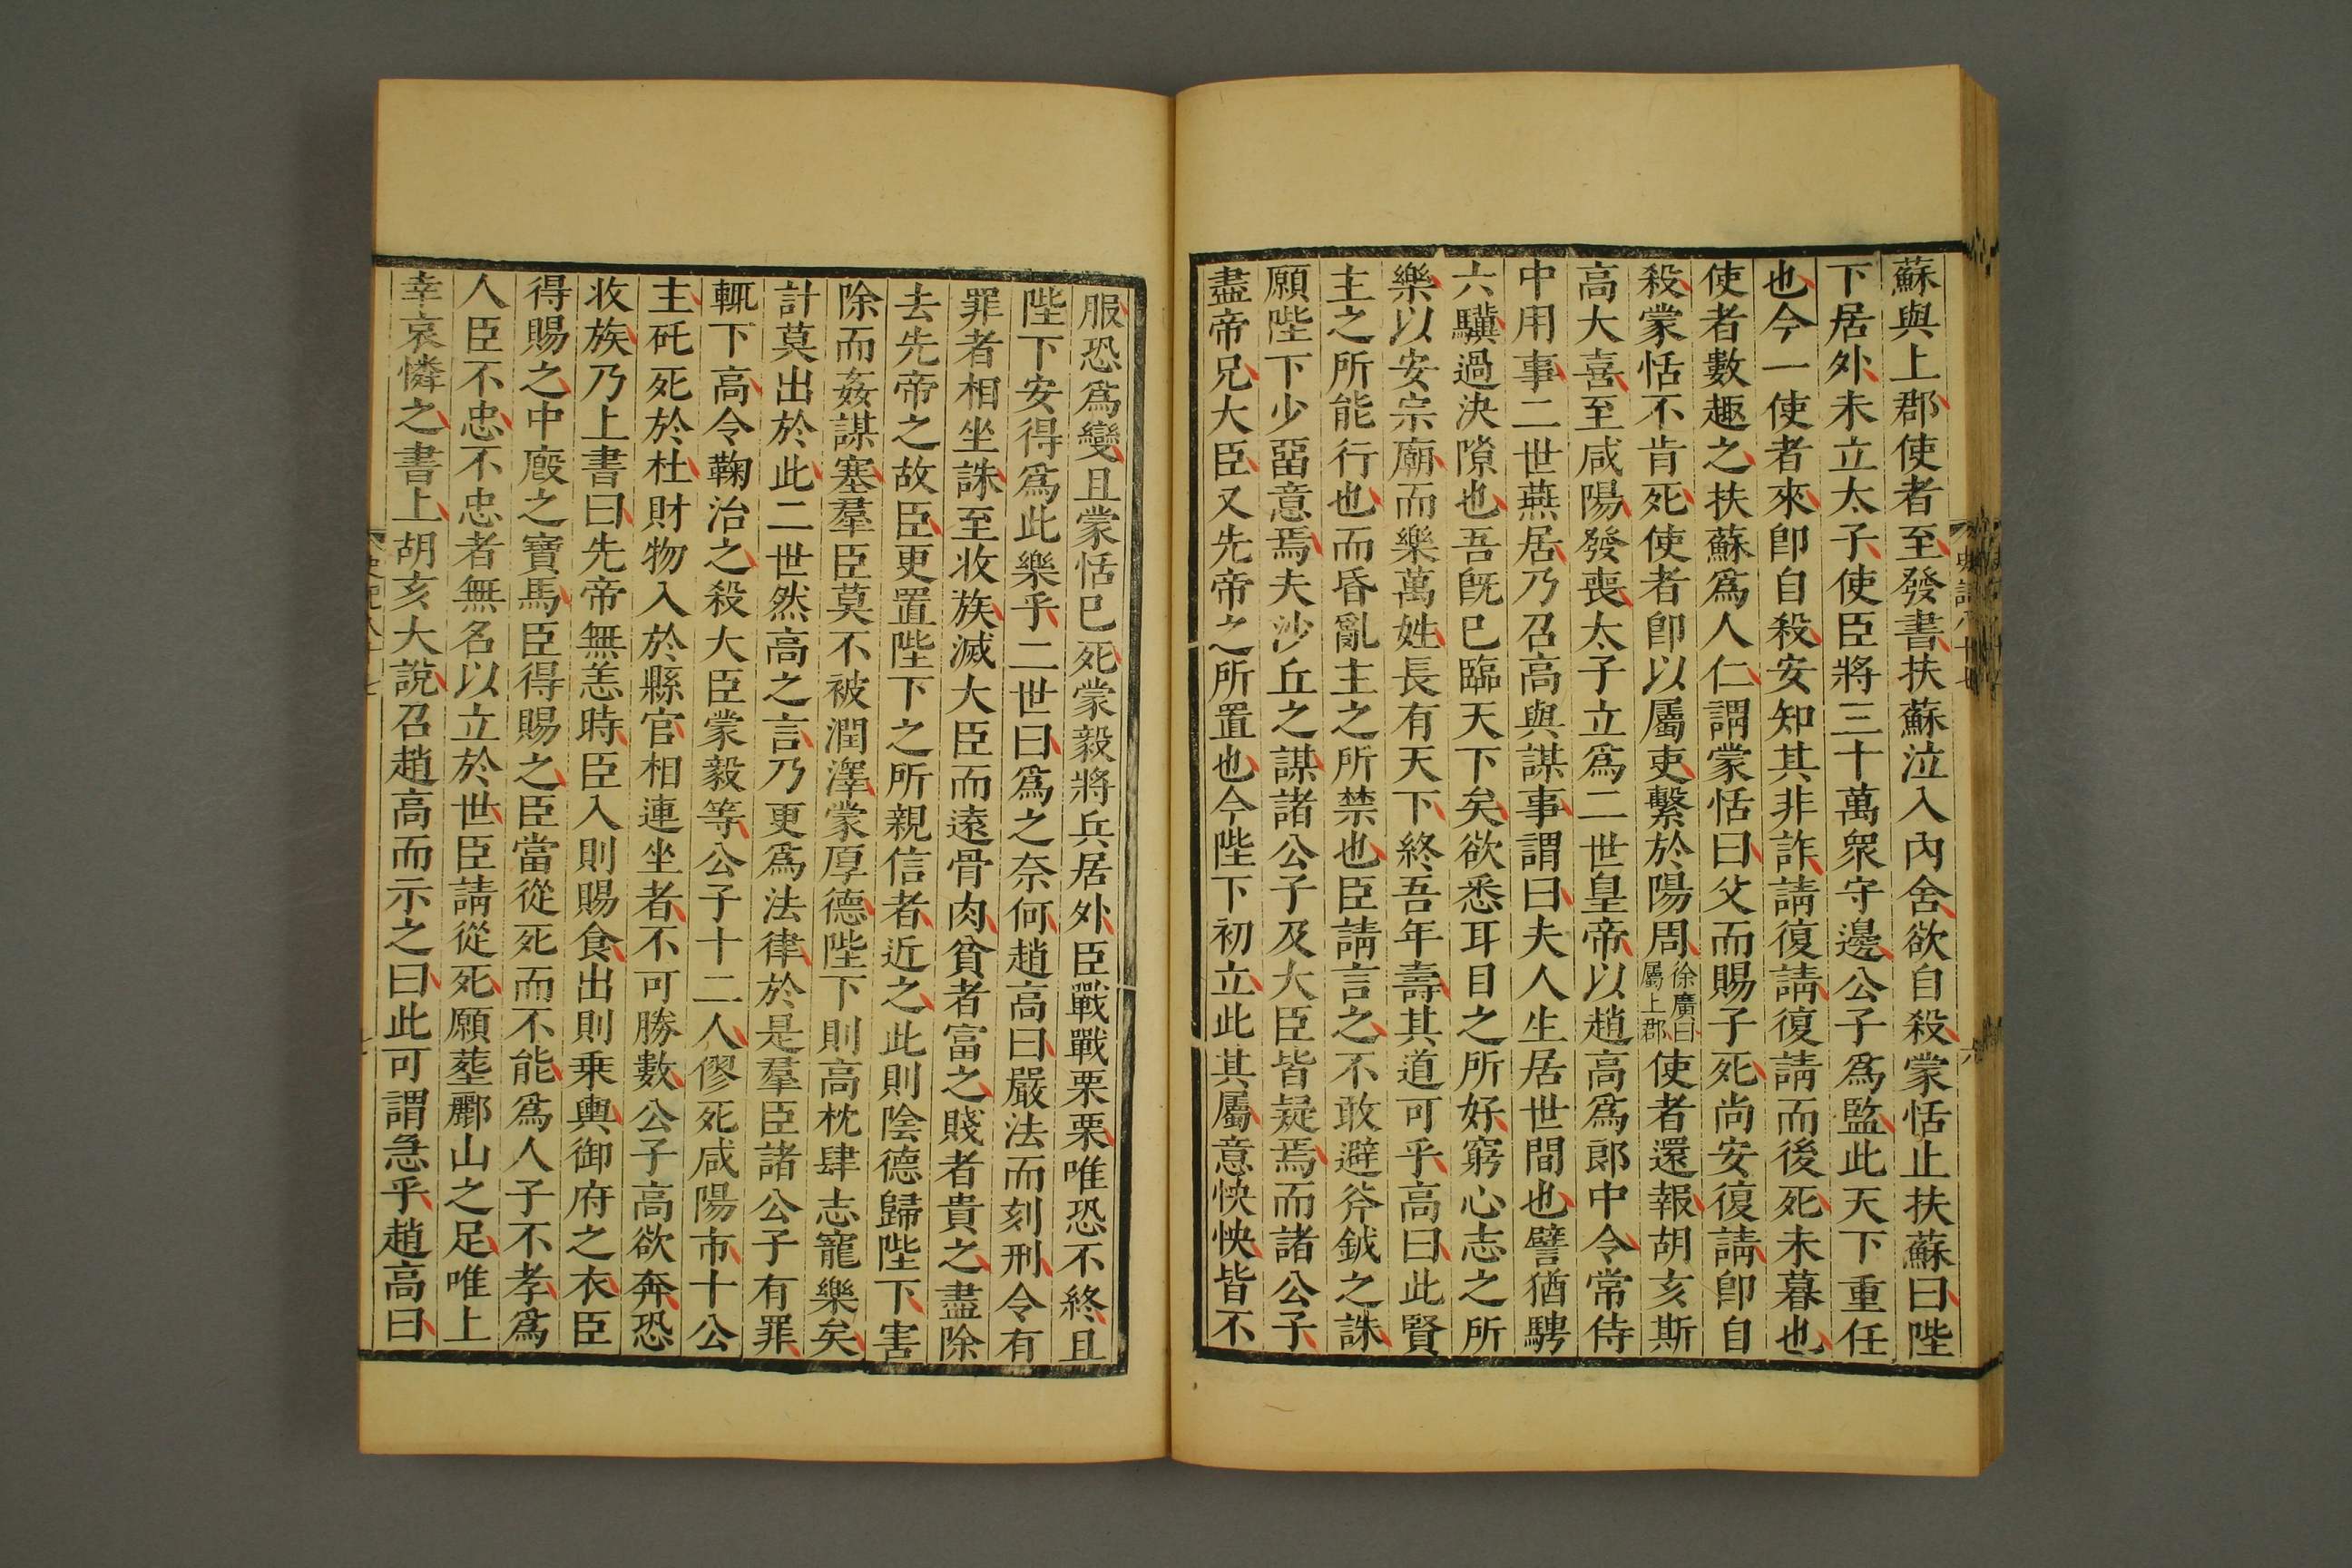 蘇與上郡使者至發書扶蘇泣入內舍欲自殺蒙恬止扶蘇曰陛
下居外未立太子使臣將三十萬衆守邊公子爲監此天下重任
也今一使者來卽自殺安知其非詐請復請復請而後死未暮也
使者數趣之扶蘇爲人仁謂蒙恬曰父而賜子死尚安復請卽自
殺蒙恬不肯死使者卽以屬吏繫於陽周徐廣曰屬上郡使者還報胡亥斯
高大喜至咸陽發喪太子立爲二世皇帝以趙高爲郎中令常侍
中用事二世燕居乃召高與謀事謂曰夫人生居世間也譬猶騁
六驥過決隙也吾旣已臨天下矣欲悉耳目之所好窮心志之所
樂以安宗廟而樂萬姓長有天下終吾年壽其道可乎高曰此賢
主之所能行也而昏亂主之所禁也臣請言之不敢避斧鉞之誅
願陛下少留意焉夫沙丘之謀諸公子及大臣皆疑焉而諸公子
盡帝兄大臣又先帝之所置也今陛下初立此其屬意怏怏皆不
服恐爲變且蒙恬已死蒙毅將兵居外臣戰戰栗栗唯恐不終且
陛下安得爲此樂乎二世曰爲之奈何趙高曰嚴法而刻刑令有
罪者相坐誅至收族滅大臣而遠骨肉貧者富之賤者貴之盡除
去先帝之故臣更置陛下之所親信者近之此則陰德歸陛下害
除而姦謀塞羣臣莫不被潤澤蒙厚德陛下則高枕肆志寵樂矣
計莫出於此二世然高之言乃更爲法律於是羣臣諸公子有罪
輒下高令鞠治之殺大臣蒙毅等公子十二人僇死咸陽市十公
主矺死於杜財物入於縣官相連坐者不可勝數公子高欲奔恐
收族乃上書曰先帝無恙時臣入則賜食出則乘輿御府之衣臣
得賜之中廄之寶馬臣得賜之臣當從死而不能爲人子不孝爲
人臣不忠不忠者無名以立於世臣請從死願葬酈山之足唯上
幸哀憐之書上胡亥大說召趙高而示之曰此可謂急乎趙高曰